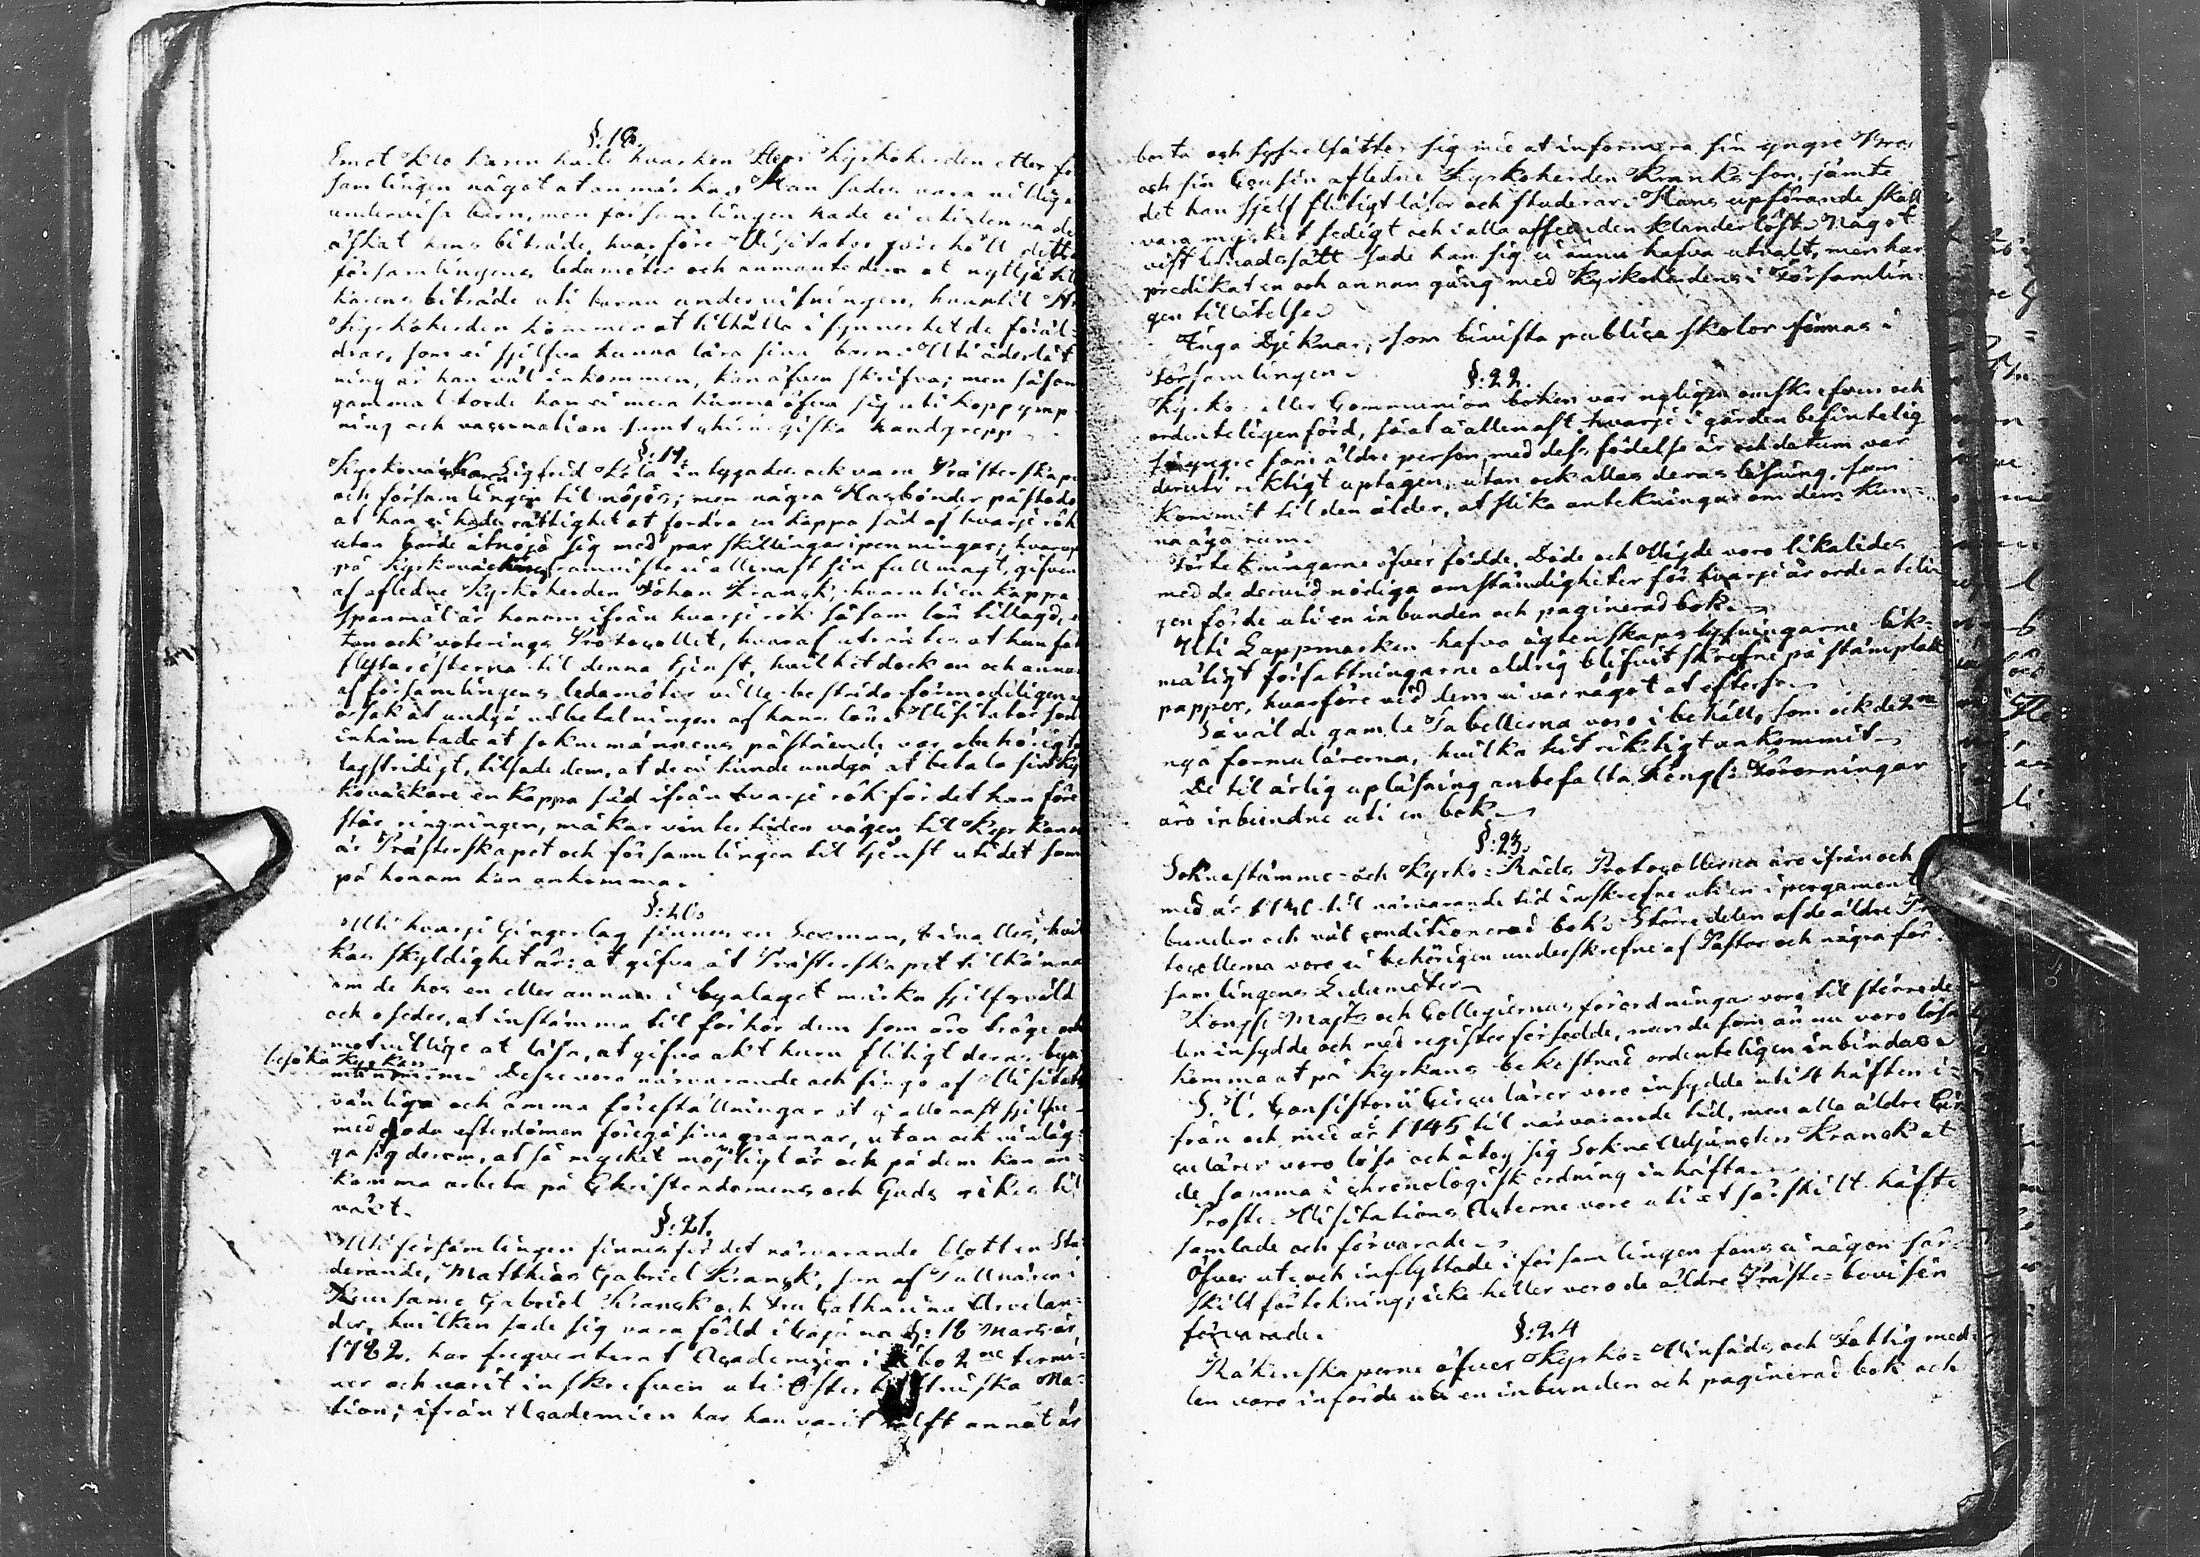 §. 18.
Emot Klockaren hade hvarken Herr Kyrkoherden eller för
samlingen något at anmärka. Han sades vara villig at
undervisa barn, men församlingen hade ei
äskat hans biträde, hvarföre Visitator förehöll
församlingens ledamöter och anmante dem at nyttja Kloc
karens biträde uti barna undervisningen, hvartil Hr
Kyrkoherden kommer at tilhålla i synnerhet de föräl-
drar, som ei sjelfva kunna lära sina barn. Uti åderlåt
ning är han väl inkommen, kan äfven skrifva; men såsom
gammal torde han ei mera kunna öfva sig uti koppymp
ning och vaccination samt chirurgiska handgrepp.
§. 19.
Kyrkoväckaren Sigfrid Kela inlygades ock vara Prästerskapet
och församlingen til nöjes; men några Husbönder påstodo
at han ei hade rättighet at fordra en kappa säd af hvarje rök
utan borde åtnöja sig med par skillingar i penningar; hvarup
på Kyrkoväckaren framviste ei allenast sin fullmagt, gifven
af afledne Kyrkoherden Johan Kranck, hvaruti en kappa
spanmål är honom ifrån hvarje rök såsom lön tillagd, u
tan ock voterings Protocollet, hvaraf utröntes at han fått
flesta rösterna til denna tjenst, hvilket dock en och annan
af församlingens ledamöter ville bestrida förmodeligen
orsak at undgå utbetalningen af hans lön. Visitator som
inhämtade at soknemännens påstående var obehörigt
lagstridigt, tilsade dem, at de ei kunde undgå at betala sin Kyr
koväckare en kappa säd ifrån hvarje rök för det han före
står ringningen, måkar vintertiden vägen til Kyrkan
är Prästerskapet och församlingen til tjenst uti det som
på honom kan ankomma.
§. 20.
Uti hvarje Gingerlag finnes en Sexman, hvil
kas skyldighet är: at gifva åt Prästerskapet tilkänna
om de hos en eller annan i byalaget märka sjelfsvåld
och oseder, at instämma til förhör dem som äro tröge och
motvillige at läsa, at gifva akt huru flitigt deras bya
besöka Kyrkan
männerne. Desse voro närvarande och fingo af Visitator
vänliga och ömma föreställningar at ei allenast sjelfve
med goda efterdömen föregå sina grannar, utan ock vinläg-
ga sig derom, at så mycket möjligt är och på dem kan an-
komma arbeta på Christendomens och Guds rikes til
växt.
§. 21.
Uti församlingen finnes för det närvarande blott en Stu
derande, Matthias Gabriel Kranck, son af Tullnären i
Kuusamo Gabriel Kranck och Fru Catharina Arvelan-
der, hvilken sade sig vara född i Cajana d: 18 Mars år
1782. har frequenterat Academien i Åbo 2ne termi-
ner och varit inskrefven uti Österbottniska Na-
tion; ifrån Academien har han varit halft annat år
borta och sysselsätter sig med at informera sin yngre Bror
och sin Cousin afledne Kyrkoherden Krancks son, jämte
det han sjelf flitigt läser och studerar. Hans upförande skall
vara mycket sedigt och i alla afseenden klanderlöst. Något
vist lefnadssätt sade han sig ei ännu hafva utvalt, men har
predikat en och annan gång med Kyrkoherdens i Församlin-
gen tillåtelse.
Inga Djeknar, som bivista publica skolor finnas i
Församlingen.
§. 22.
Kyrko- eller Communion boken var nyligen omskrefven och
ordenteligen förd, så at ei allenast hvarje i gården befintelig
så yngre som äldre person, med dess födelse år och datum var
deruti riktigt uptagen, utan ock allas deras läsning, som
kommit til den ålder, at slika antekningar om dem kun-
na äga rum.
Förtekningarne öfver födde, Döde och Vigde voro likaledes
med de dervid nödiga omständigheter för hvarje år ordenteli
gen förde uti en inbunden och paginerad bok.
Uti Lappmarken hafva ägtenskaps lysningarne lik-
mätigt författningarne aldrig blifvit skrefne på stämplat
papper, hvarföre vid dem ei var något at efterse.
Såväl de gamle Tabellerna voro i behåll, som ock de 2ne
nya formulärerna, hvilka hit riktigt ankommit.
De til årlig upläsning anbefalta Kongl: Förordningar
äro inbundne uti en bok.
§. 23.
Soknestämme- och Kyrko-Råds Protocollerna äro ifrån och
med år til närvarande tid inskrefne uti en i pergament
bunden och väl conditionerad bok. Större delen af de äldre Pro
tocollerna voro ei behörigen underskrefne af Pastor och några för
samlingens Ledamöter.
Kongl. Majts och Collegiernas förordningar voro til större de
len insydde och med register försedde, men de som ännu voro lösa
komma at på Kyrkans bekostnad ordenteligen inbindas.
S. V. Consistorii Circulärer voro insydde uti 4 häften i-
från och med år 1745 til närvarande tid, men alla äldre Cir
culärer voro lösa och åtog sig Sokne Adjuncten Kranck at
de samma i chronologisk ordning inhäfta.
Prosts Visitations Acterne voro uti et särskilt häfte
samlade och förvarade.
Öfver ut- och inflyttade i församlingen fans ei någon sär-
skild förtekning; icke heller voro de äldre Präste-bevisen
förvarade.
§. 24
Räkenskaperne öfver Kyrko- Vinsäds och Fattigmed-
len voro införde uti en inbunden och paginerad bok och